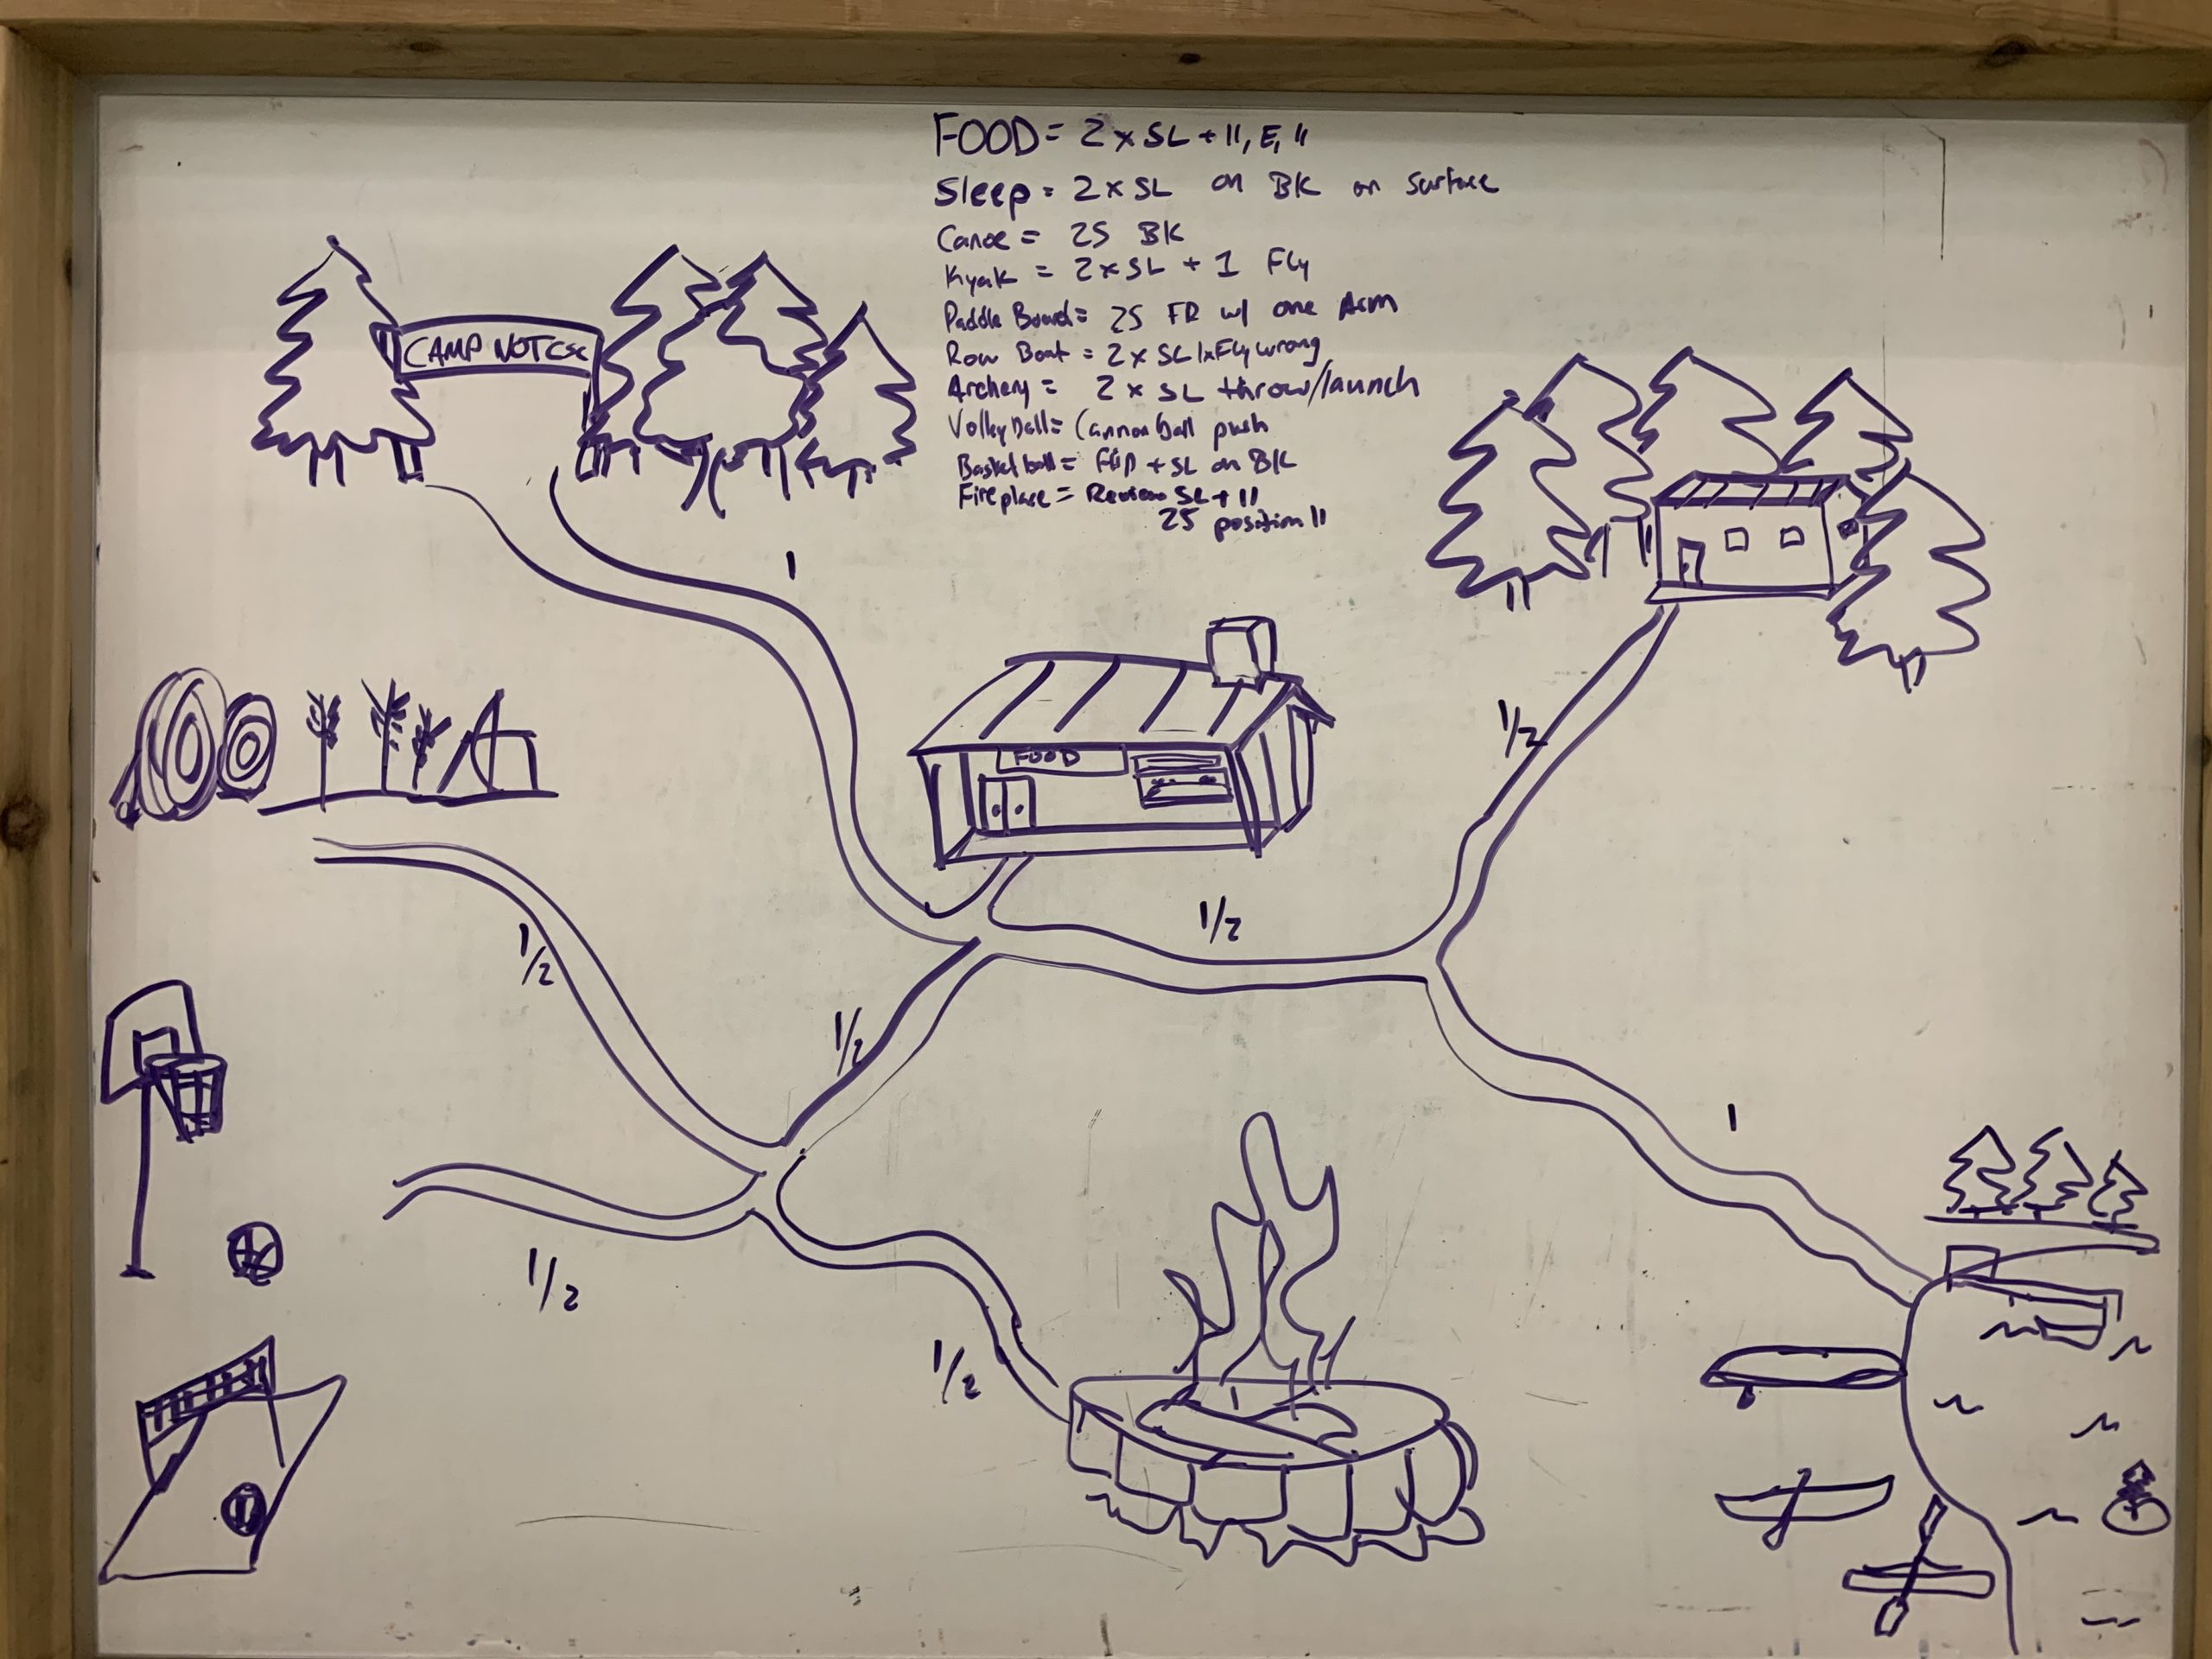 FOOD = 2 x SL + 11, E, 11
Sleep = 2 x SL on BK on surface
Canoe = 25 BK
Kyak = 2 x SL + 1 Fly
Paddle Board = 25 FR w/ one Arm
Row Boat = 2 x SL 1x Fly wrong
Archery = 2 x SL throw/launch
Volleyball = Cannon ball push
Basketball = Flip + SL on BK
Fireplace = Review SL + 11
25 position 11
CAMP NOTCSC
1
1/2
FOOD
1/2
1/2
1/2
1
1/2
1/2